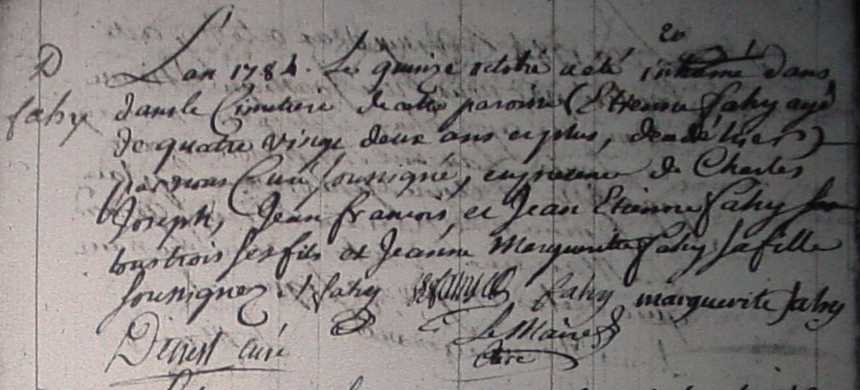 D
fahy
L'an 1784. Le quinze octobre a été inhumé dans
dans le Cimetiere de cette paroisse (Etienne fahy agé
de quatre vingt deux ans et plus, decedé hier)
par nous Curé soussigné, en presence de Charles
Joseph, Jean francois et Jean Etienne fahy
tous trois ses fils et Jeanne Marguerite fahy sa fille
soussignez. fahy fahy marguerite fahy
curé LeMaire